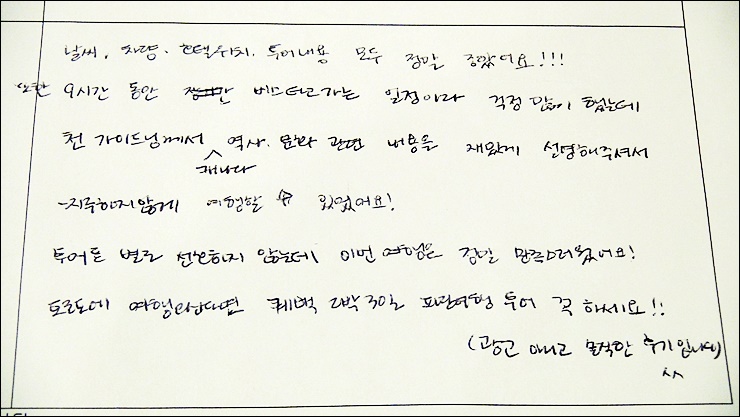 날씨, 차량, 호텔위치, 투어내용 모두 정말 좋았어요!!!
또한 9시간 동안 버스타고가는 일정이라 걱정 많이 했는데
천 가이드님께서 캐나다 역사, 문화 관련 내용을 재밌게 설명해주셔서
지루하지않게 여행할 수 있었어요!
투어를 별로 선호하지 않는데 이번 여행은 정말 만족스러웠어요!
토론토에 여행오신다면 퀘백 2박3일 투어 꼭 하세요!!
(광고 아니고 솔직한 후기입니다)